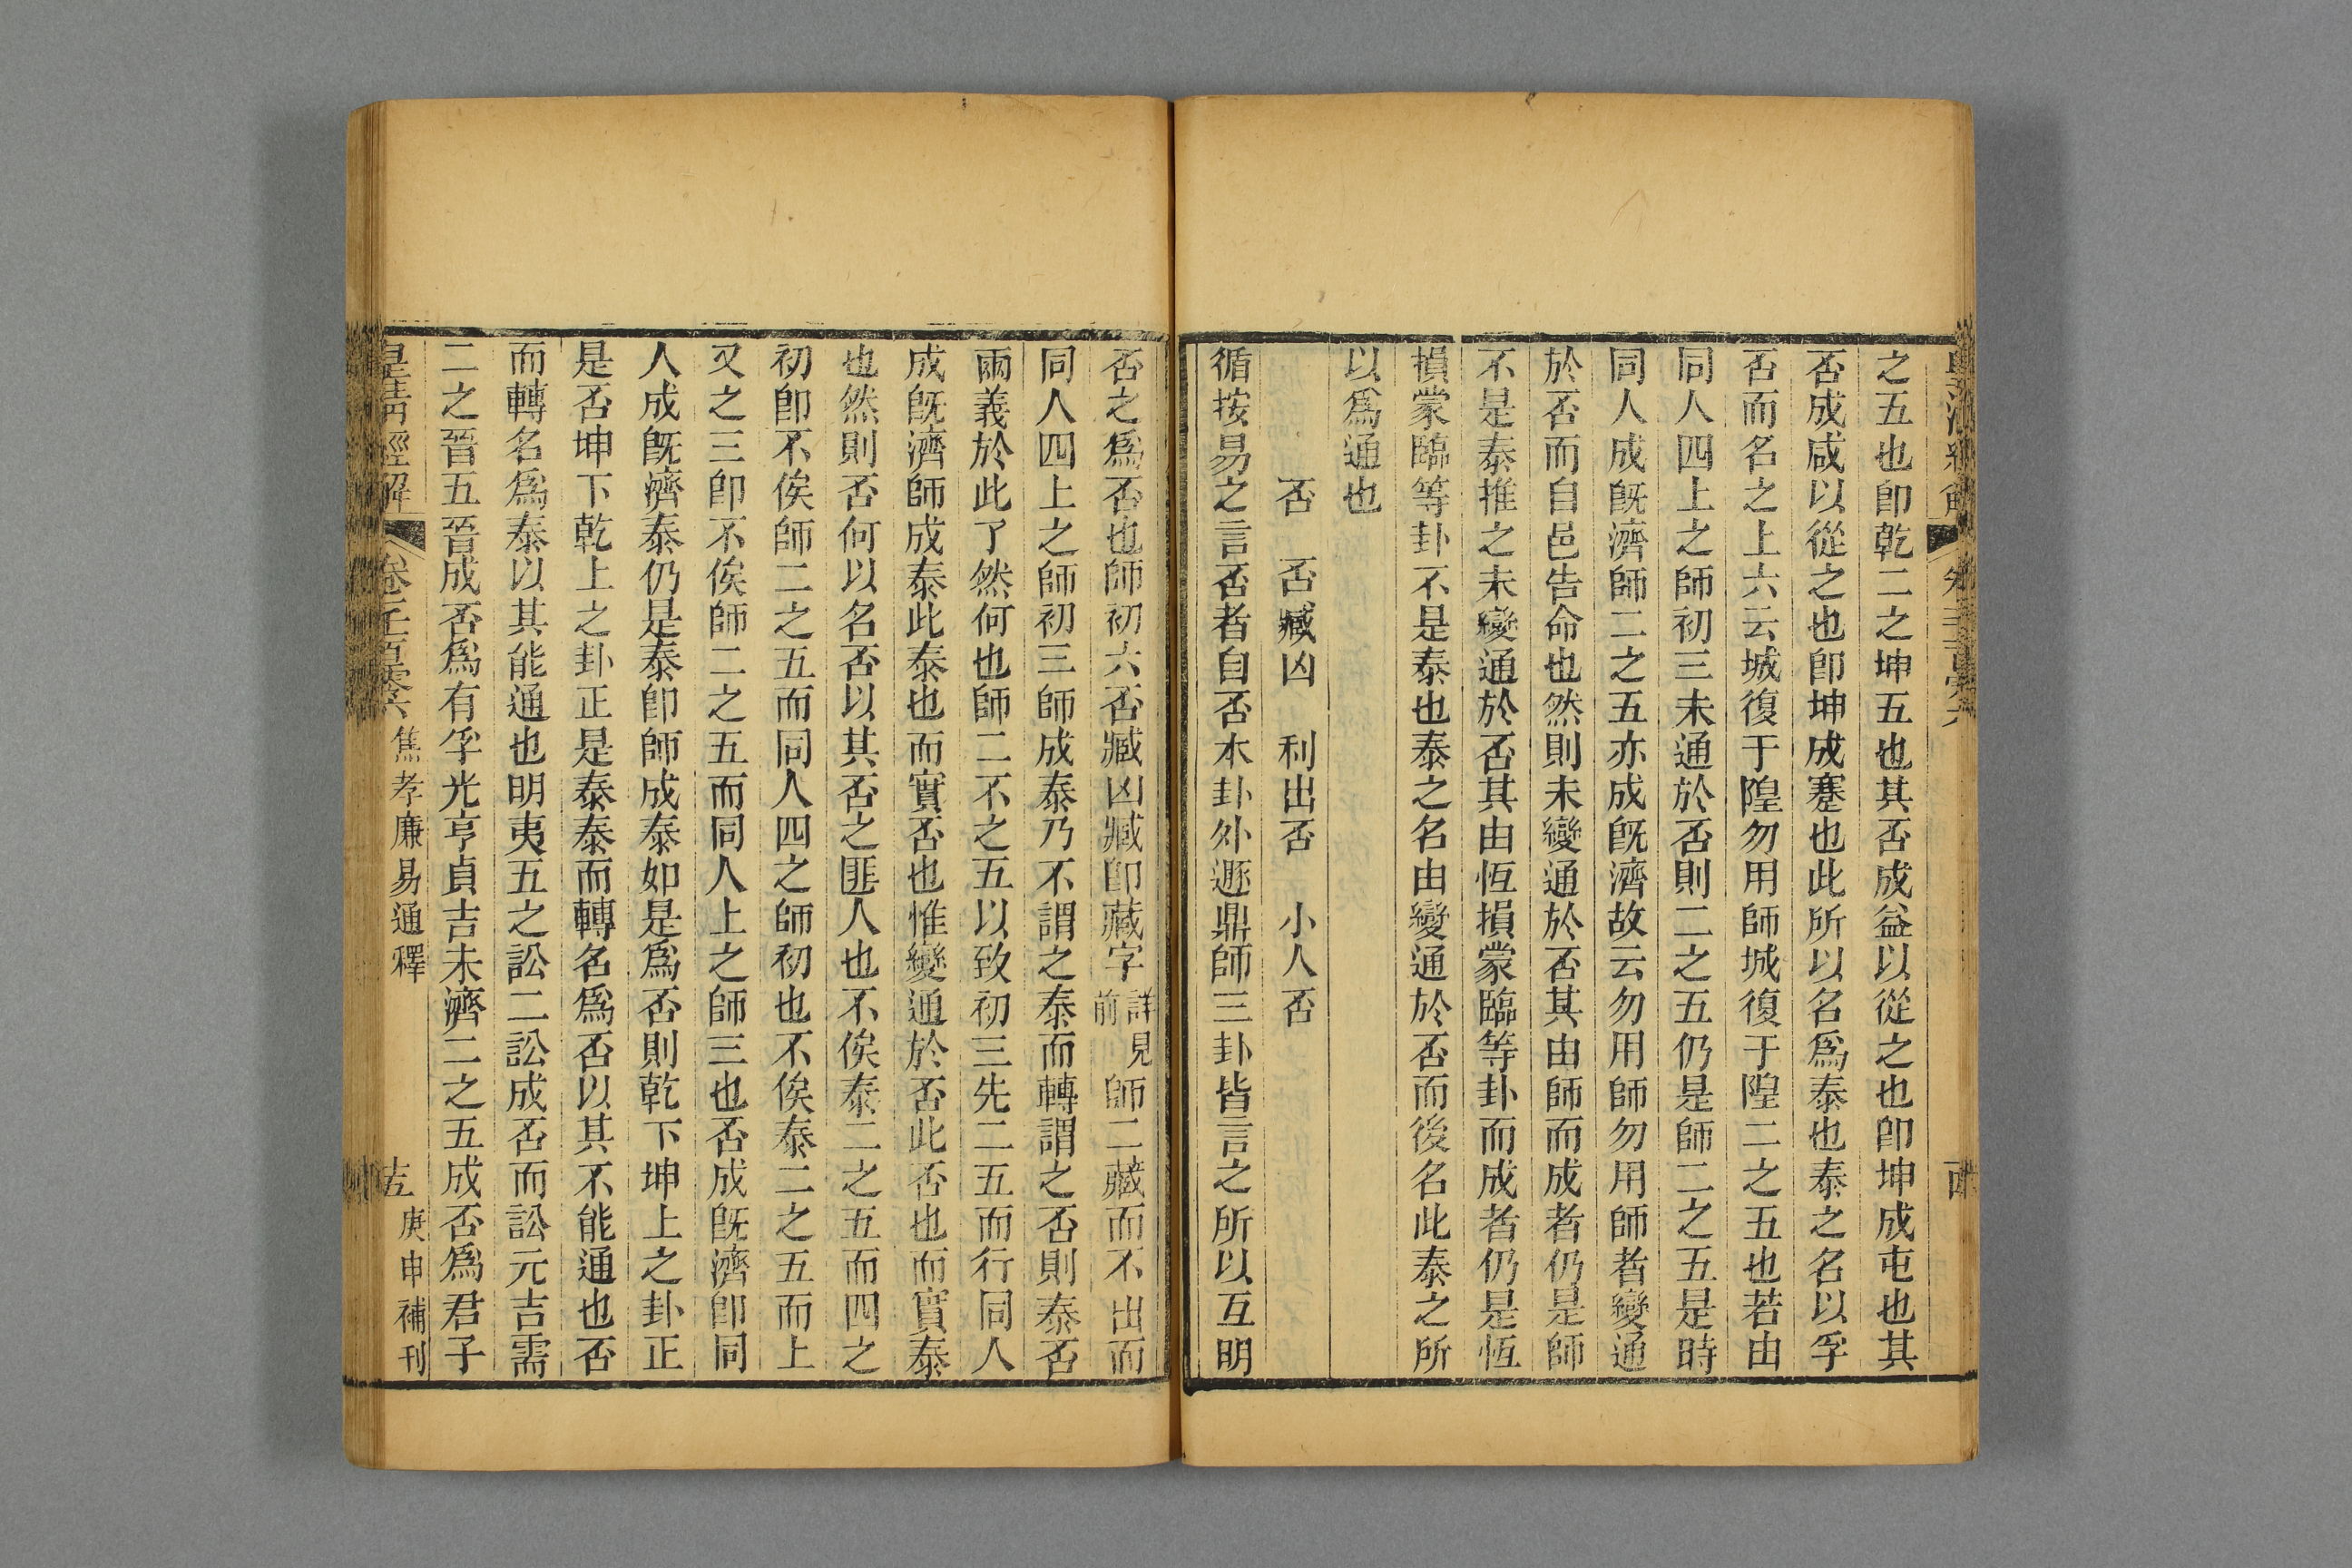 之五也卽乾二之坤五也其否成益以從之也卽坤成屯也其
否成咸以從之也卽坤成蹇也此所以名爲泰也泰之名以孚
否而名之上六云城復于隍勿用師城復于隍二之五也若由
同人四上之師初三未通於否則二之五仍是師二之五是時
同人成旣濟師二之五亦成旣濟故云勿用師勿用師者變通
於否而自邑告命也然則未變通於否其由師而成者仍是師
不是泰推之未變通於否其由恆損蒙臨等卦而成者仍是恆
損蒙臨等卦不是泰也泰之名由變通於否而後名此泰之所
以爲通也
否 否臧凶 利出否 小人否
循按易之言否者自否本卦外遯鼎師三卦皆言之所以互明
否之爲否也師初六否臧凶臧卽藏字詳見前師二藏而不出而
同人四上之師初三師成泰乃不謂之泰而轉謂之否則泰否
兩義於此了然何也師二不之五以致初三先二五而行同人
成旣濟師成泰此泰也而實否也惟變通於否此否也而實泰
也然則否何以名否以其否之匪人也不俟泰二之五而四之
初卽不俟師二之五而同人四之師初也不俟泰二之五而上
又之三卽不俟師二之五而同人上之師三也否成旣濟卽同
人成旣濟泰仍是泰卽師成泰如是爲否則乾下坤上之卦正
是否坤下乾上之卦正是泰泰而轉名爲否以其不能通也否
而轉名爲泰以其能通也明夷五之訟二訟成否而訟元吉需
二之晉五晉成否爲有孚光亨貞吉未濟二之五成否爲君子
皇淸經解 卷一千一百零六 焦孝廉易通釋 十五 庚申補刊